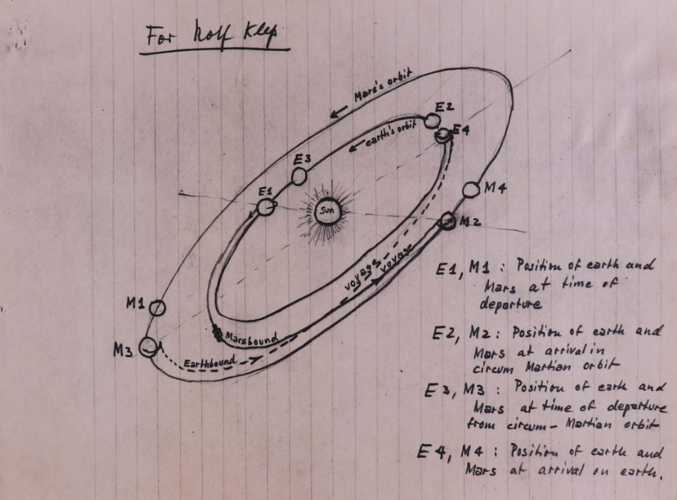 For Rolf Klep
Mars's orbit
earth's orbit
E2
E4
E3
E1
Sun
M4
M2
voyage
voyage
M1
Marsbound
M3
Earthbound
E1, M1 : Position of earth and
Mars at time of
departure
E2, M2 : Position of earth and
Mars at arrival in
circum Martian orbit
E3, M3 : Position of earth and
Mars at time of departure
from circum-Martian orbit
E4, M4 : Position of earth and
Mars at arrival on earth.